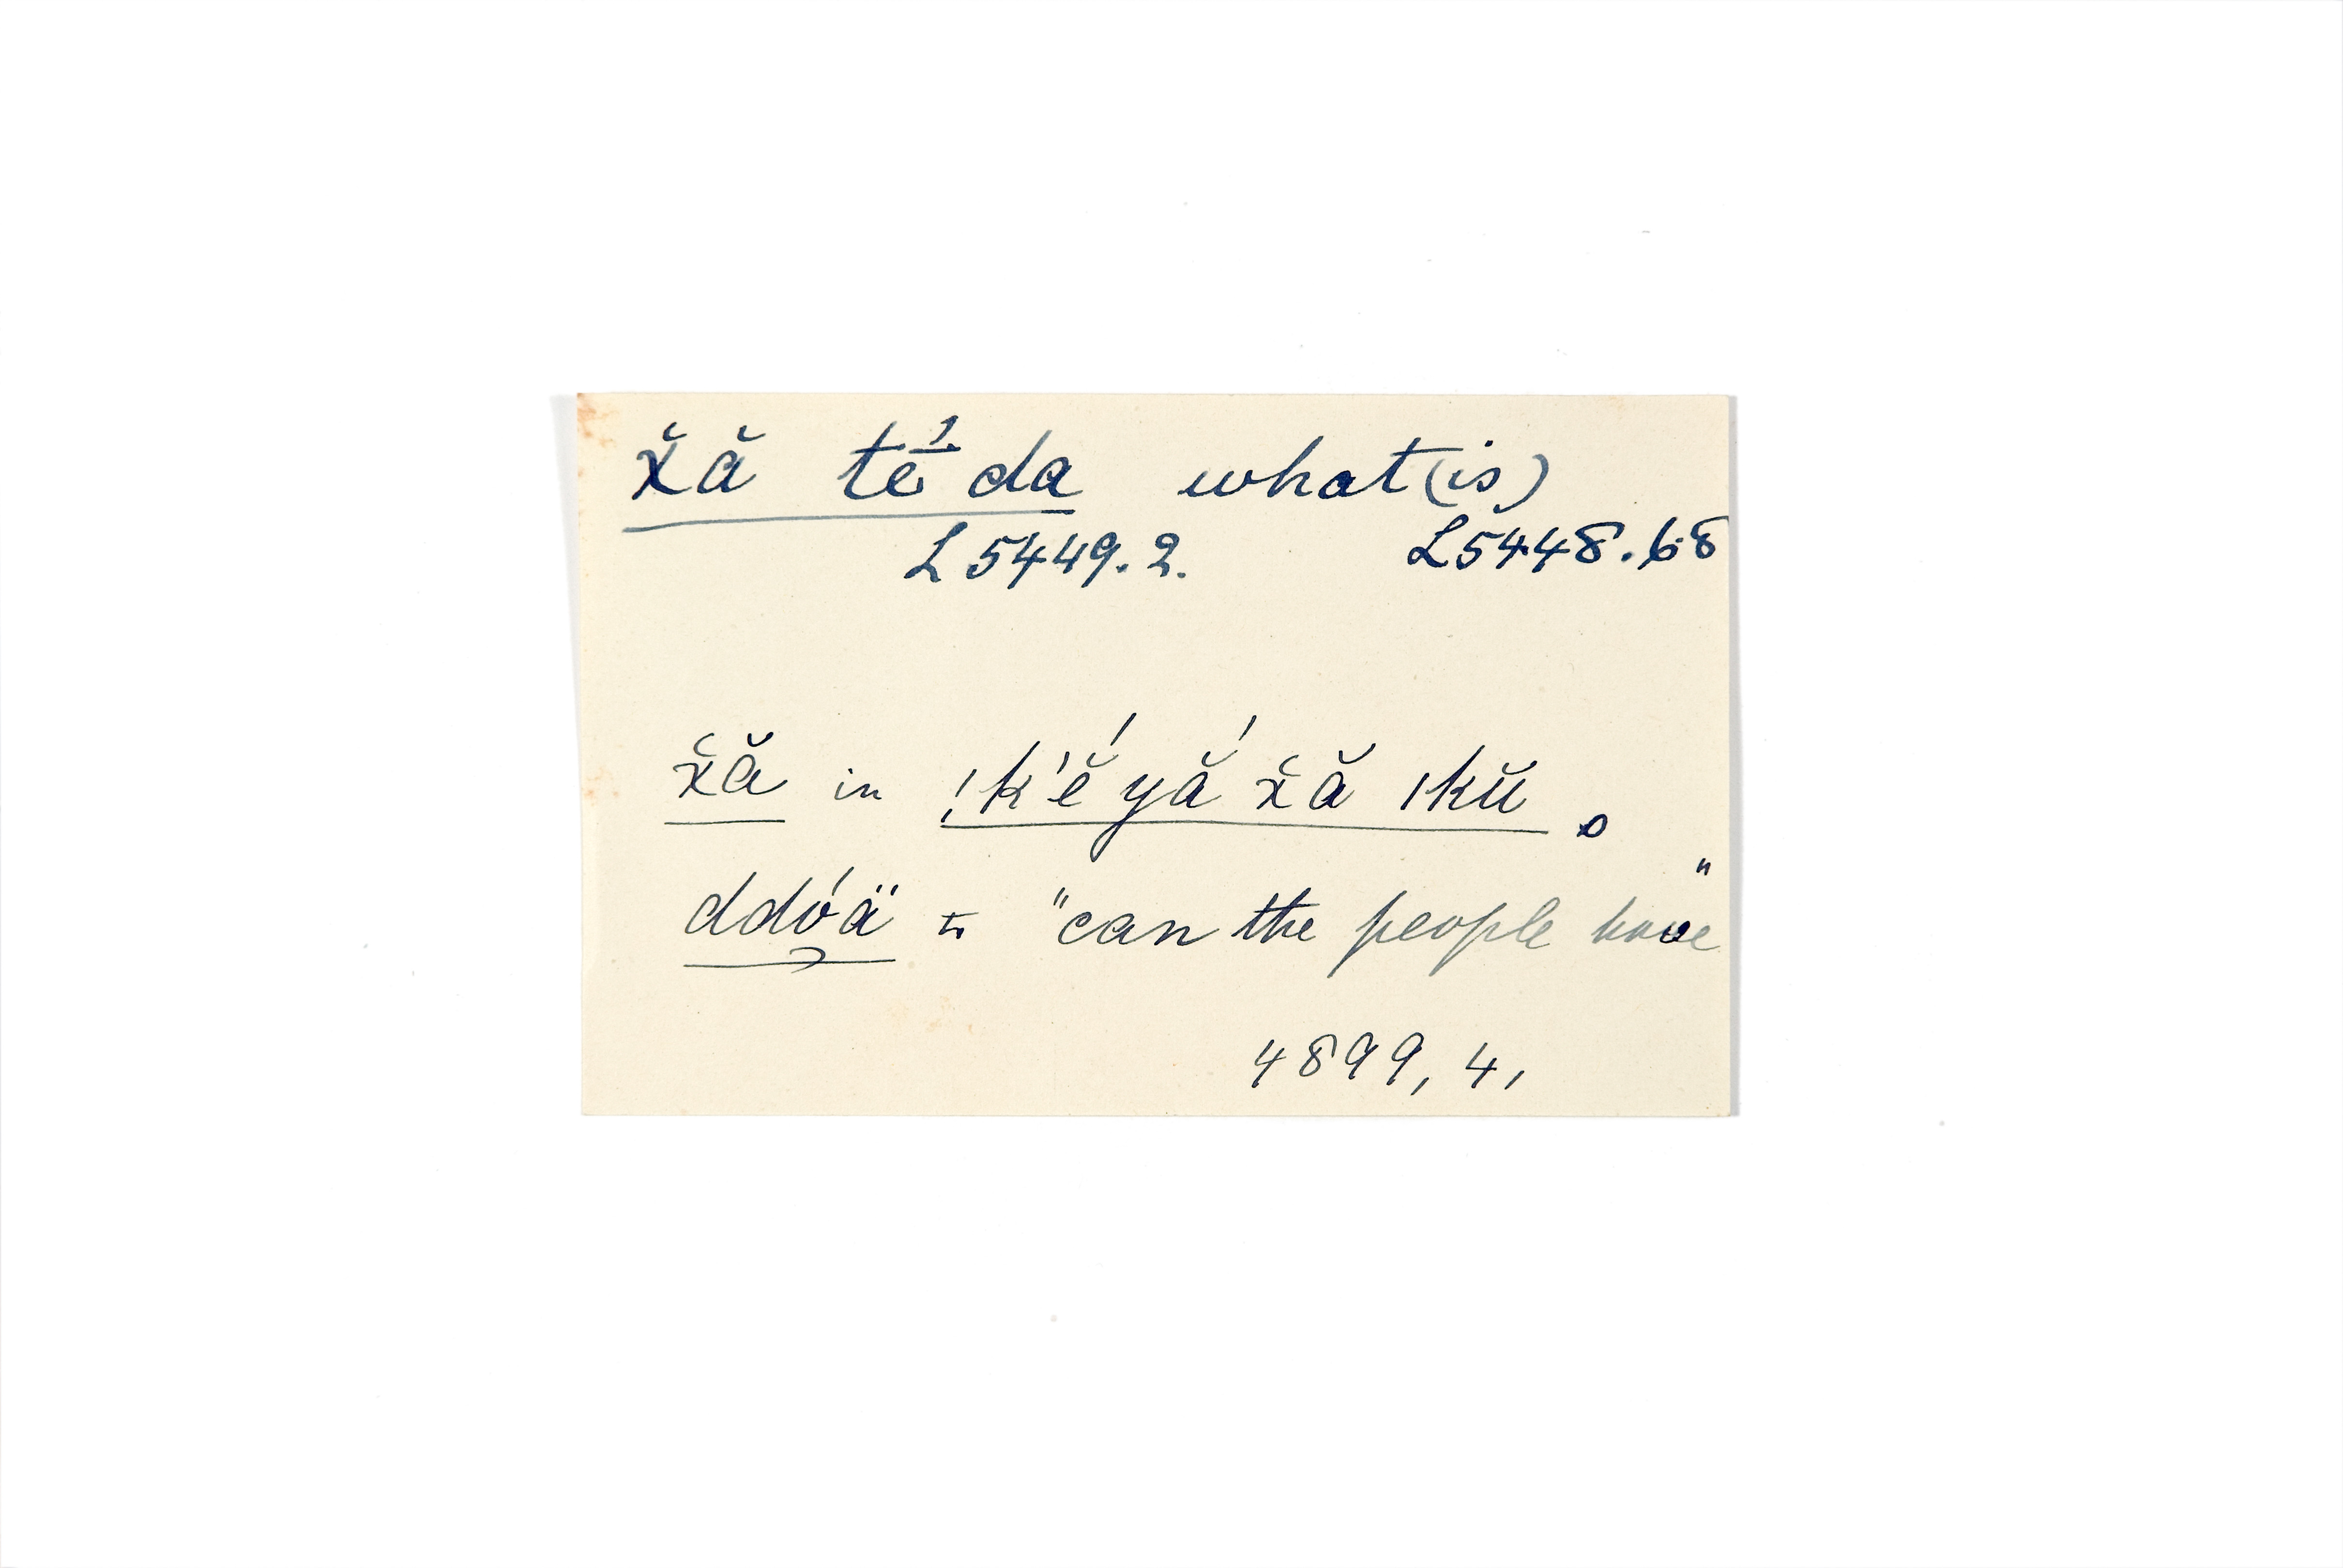 x̌ă tḗ da what (is)
L 5449.2. L5448.68
x̌ă in !k'ĕ́ yắ x̌ă ıkŭ 。
ddóä = "can the people have"
4899, 4,